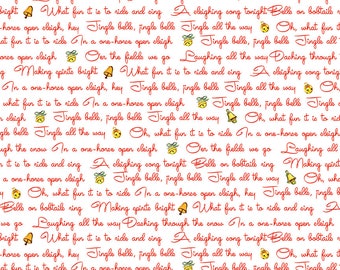 Jingle bells, jingle bells Jingle all the way A sleighing song tonight Bells on bobtails
fun it is to ride and sing In a one-horse open sleigh, hey Jingle bells, jingle bells
open sleigh Oer the fields we go Laughing all the way Dashing through
Making spirits bright What fun it is to ride and sing A sleighing song tonight
In a one-horse open sleigh, hey Jingle bells, jingle bells Jingle all the way
Oh, what fun it is to ride In a one-horse open sleigh Jingle bells, jingle bells,
sleigh, hey Jingle bells, jingle bells Jingle all the way Oh, what fun
bells Jingle all the way Oh, what fun it is to ride In a one-horse open sleigh
through the snow In a one-horse open sleigh Oer the fields we go
A sleighing song tonight Bells on bobtails ring Making spirits
Oh, what fun it is to ride In a one-horse open sleigh Jingle bells, jingle bells
Bells on bobtails ring Making spirits bright What fun it is to ride and sing
we go Laughing all the way Dashing through the snow In a one-horse open sleigh
bright What fun it is to ride and sing A sleighing song tonight Bells on
In a one-horse open sleigh, hey Jingle bells, jingle bells Jingle